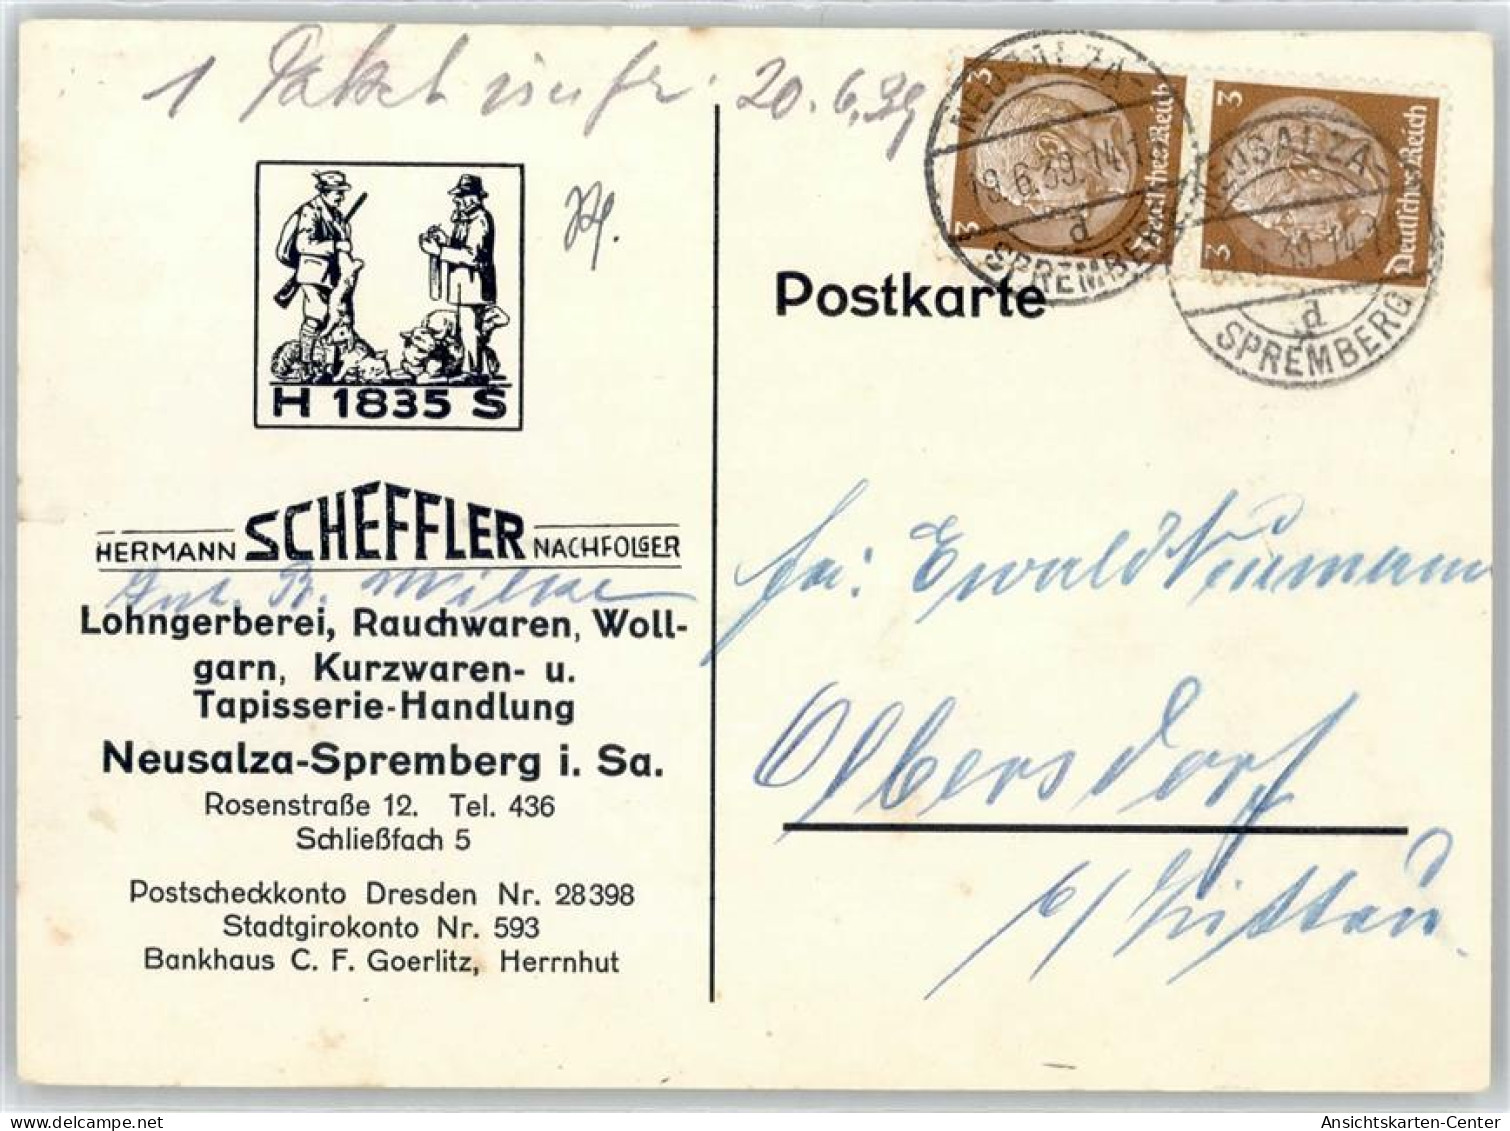 1 Paket 20.6.39
3 3
Deutsches Reich
3 3
Deutsches Reich
NEUSALZA-
19.6.39.14
d
SPREMBERG
NEUSALZA-
6.39.14
d
SPREMBERG
H 1835 S
Postkarte
HERMANN SCHEFFLER NACHFOLGER
Lohngerberei, Rauchwaren, Woll-
garn, Kurzwaren- u.
Tapisserie-Handlung
Neusalza-Spremberg i. Sa.
Rosenstraße 12. Tel. 436
Schließfach 5
Postscheckkonto Dresden Nr. 28398
Stadtgirokonto Nr. 593
Bankhaus C. F. Goerlitz, Herrnhut
Fa: Ewald Neumann
Olbersdorf
b/ Zittau.
Ansichtskarten-Center